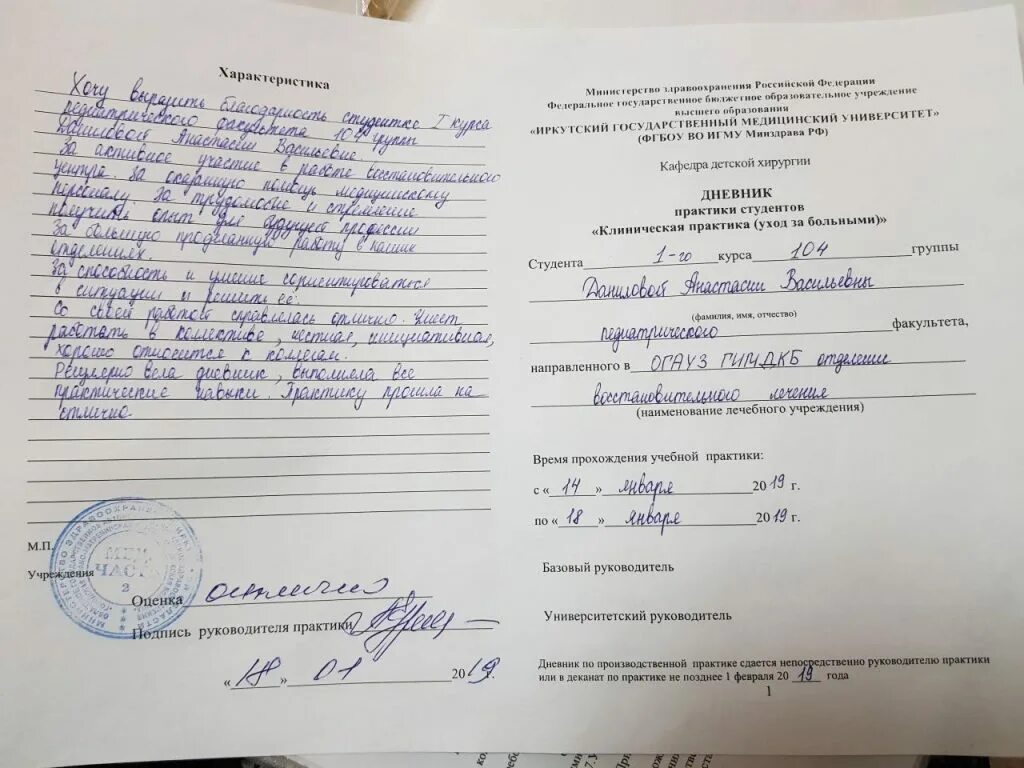 Характеристика
Хочу выразить благодарность студентке I курса
педиатрического факультета 104 группы
Даниловой Анастасии Васильевне
За активное участие в работе восстановительного
центра. За оказанную помощь медицинскому
персоналу. За трудолюбие и стремление
получить опыт для будущей профессии
За большую проделанную работу в наших
отделениях.
За способность и умение сориентироваться
в ситуации и решить её.
Со своей работой справлялась отлично. Умеет
работать в коллективе, честная, инициативная,
хорошо относится к коллегам.
Регулярно вела дневник, выполняла все
практические навыки. Практику прошла на
отлично
М.П.
Учреждения
МЕД.
ЧАСТЬ
2
Оценка отлично
Подпись руководителя практики
«18» 01 2019.
Министерство здравоохранения Российской Федерации
Федеральное государственное бюджетное образовательное учреждение
высшего образования
«ИРКУТСКИЙ ГОСУДАРСТВЕННЫЙ МЕДИЦИНСКИЙ УНИВЕРСИТЕТ»
(ФГБОУ ВО ИГМУ Минздрава РФ)
Кафедра детской хирургии
ДНЕВНИК
практики студентов
«Клиническая практика (уход за больными)»
Студента 1-го курса 104 группы
Даниловой Анастасии Васильевны
(фамилия, имя, отчество)
педиатрического факультета,
направленного в ОГАУЗ ГИМДКБ отделение
восстановительного лечения
(наименование лечебного учреждения)
Время прохождения учебной практики:
с «14» января 2019 г.
по «18» января 2019 г.
Базовый руководитель
Университетский руководитель
Дневник по производственной практике сдается непосредственно руководителю практики
или в деканат по практике не позднее 1 февраля 2019 года
1